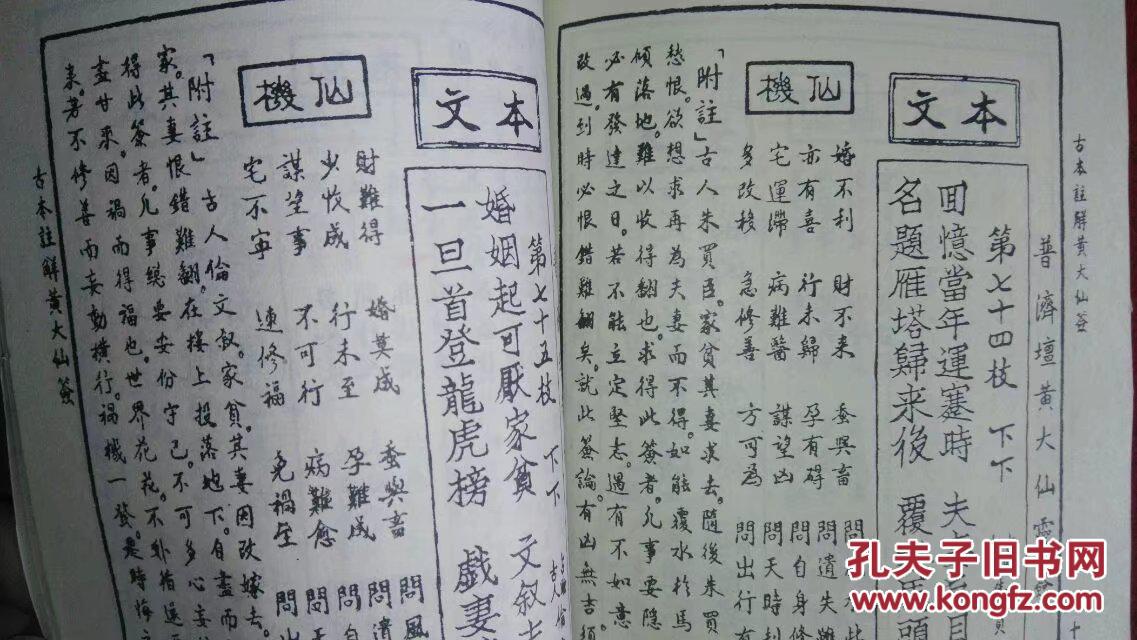 古本註解黃大仙簽
普濟壇黃大仙靈
本文
第七十四枝 下下
回憶當年運蹇時 夫
名題雁塔歸來後 覆
頭
仙機
婚不利 財不來 蚕與畜 問
亦有喜 行未歸 孕有碍 問遺失
宅運滯 病難醫 謀望凶 問自身
多改移 急修善 方可為 問天時
問出行
「附註」古人朱買臣。家貧其妻求去。隨後朱買
愁恨。欲想求再為夫妻而不得。如能覆水於馬
傾落地。難以收得翻也。求得此簽者。凡事要隱
必有發達之日。若不能立定堅志。遇有不如意
改過。到時必恨錯難翻矣。就此簽論。有凶無吉須
本文
第七十五枝 下下
古人
婚姻起可厭家貧 文叙夫
一旦首登龍虎榜 戲妻
仙機
財難得 婚莫成 蚕與畜 問風
少收成 行未至 孕難成 問
謀望事 不可行 病難愈 問自
宅不寧 速修福 免禍坐 問
問
「附註」古人倫文叙。家貧。其妻因改嫁去。
家。其妻恨錯難翻。在樓上投落地下。自盡而
得此簽者。凡事總要安份守己。不可多心妄
盡甘來。因禍而得福也。世界花花。不
来。若不修善而妄動橫行。禍機一發。是時悔
古本註解黃大仙簽
孔夫子旧书网
www.kongfz.com